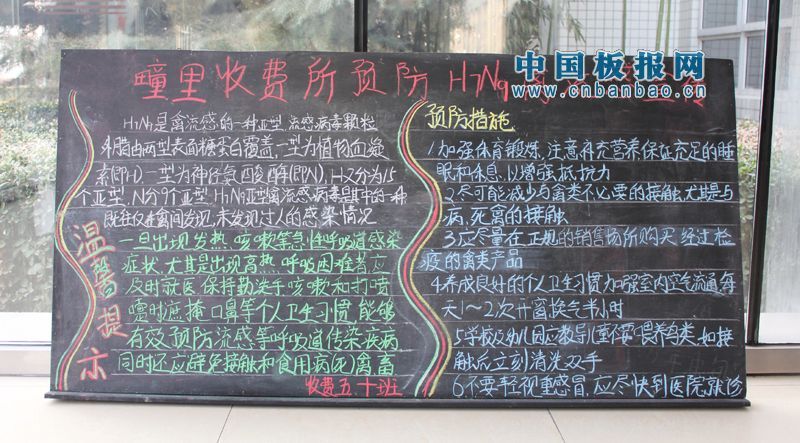 中国板报网
www.cnbanbao.cn
疃里收费所预防H7N9
H7N9是禽流感的一种亚型,流感病毒颗粒
外膜由两型表面糖蛋白覆盖,一型为植物血凝
素(即H)一型为神经氨酸酶(即N),H又分为15
个亚型,N分9个亚型H7N9亚型禽流感病毒是其中的一种
既往仅在禽间发现,未发现过人的感染情况
温馨提示
一旦出现发热咳嗽等急性呼吸道感染
症状,尤其是出现高热,呼吸困难者应
及时就医保持勤洗手咳嗽和打喷
嚏时遮掩口鼻等个人卫生习惯能够
有效预防流感等呼吸道传染疾病
同时还应避免接触和食用病(死)禽畜
收费五、十班
预防措施
1加强体育锻炼,注意补充营养保证充足的睡
眠和休息,以增强抵抗力
2.尽可能减少与禽类不必要的接触尤其是与
病,死禽的接触
3.应尽量在正规的销售场所购买经过检
疫的禽类产品
4.养成良好的个人卫生习惯加强室内空气流通每
天1~2次开窗换气半小时
5学校及幼儿园应教导儿童不要喂养禽类,如接
触后立刻清洗双手
6.不要轻视重感冒,应尽快到医院就诊